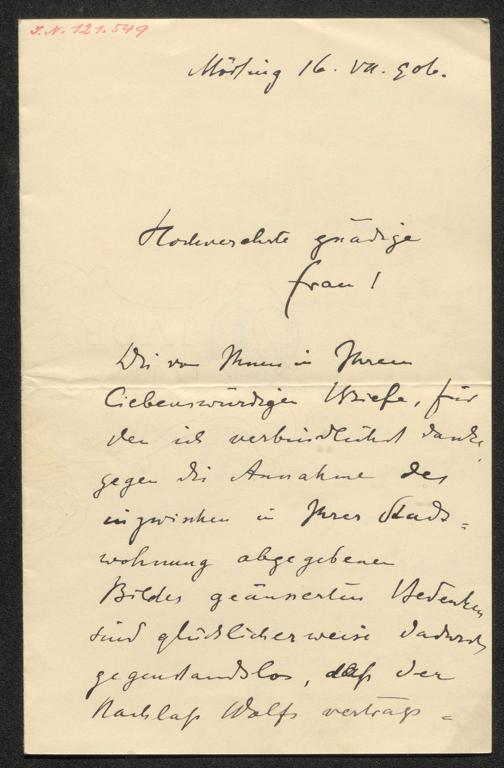 J.N. 121.549
Mödling 16. VII. 906.
Hochverehrte gnädige
Frau!
Die von Ihnen in Ihrem
liebenswürdigen Briefe, für
den ich verbindlichst danke,
gegen die Annahme des
inzwischen in Ihrer Stadt=
wohnung abgegebenen
Bildes geäusserten Bedenken
sind glücklicherweise dadurch
gegenstandslos, daß der
Nachlaß Wolfs vertrags=